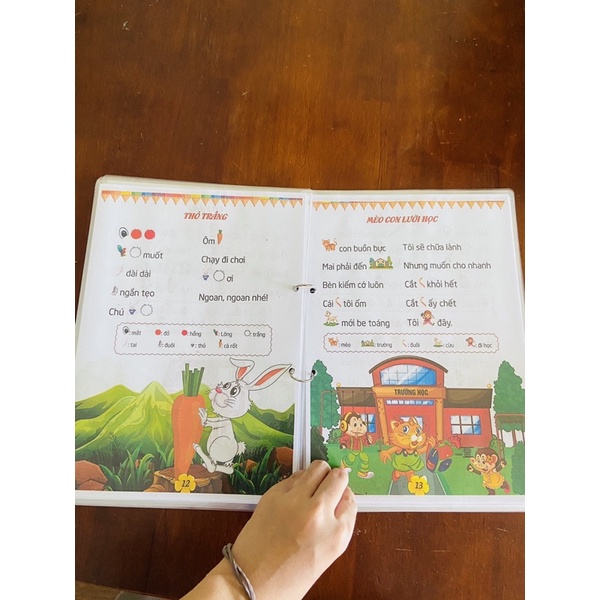 THỎ TRẮNG
muốt
dài dài
ngắn tẹo
Chú
Ôm
Chạy đi chơi
ơi
Ngoan, ngoan nhé!
: mắt : đỏ : hồng : Lông : trắng
: tai : đuôi : thỏ : cà rốt
12
MÈO CON LƯỜI HỌC
con buồn bực
Mai phải đến
Bèn kiếm cớ luôn
Cái tôi ốm
mới be toáng
Tôi sẽ chữa lành
Nhưng muốn cho nhanh
Cắt khỏi hết
Cắt ấy chết
Tôi đây.
: mèo : trường : đuôi : cừu : đi học
TRƯỜNG HỌC
13